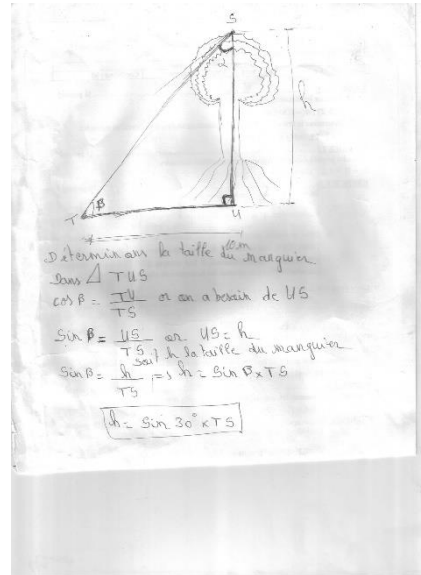 S
2
h
B
T
U
10m
Déterminons la taille du manguier
Dans △ TUS
cos β = TU/TS or on a besoin de US
Sin β = US/TS or US = h
soit h la taille du manguier
Sin β = h/TS => h = Sin β x TS
h = Sin 30° x TS